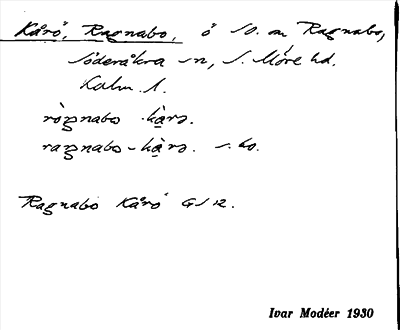 Kårö, Ragnabo, ö SO. om Ragnabo,
Söderåkra sn, S. Möre hd.
Kalm. l.
ròŋnabo kàrə.
raŋnabo-kàrə. s. ho.
Ragnabo Kårö GS 12.
Ivar Modéer 1930